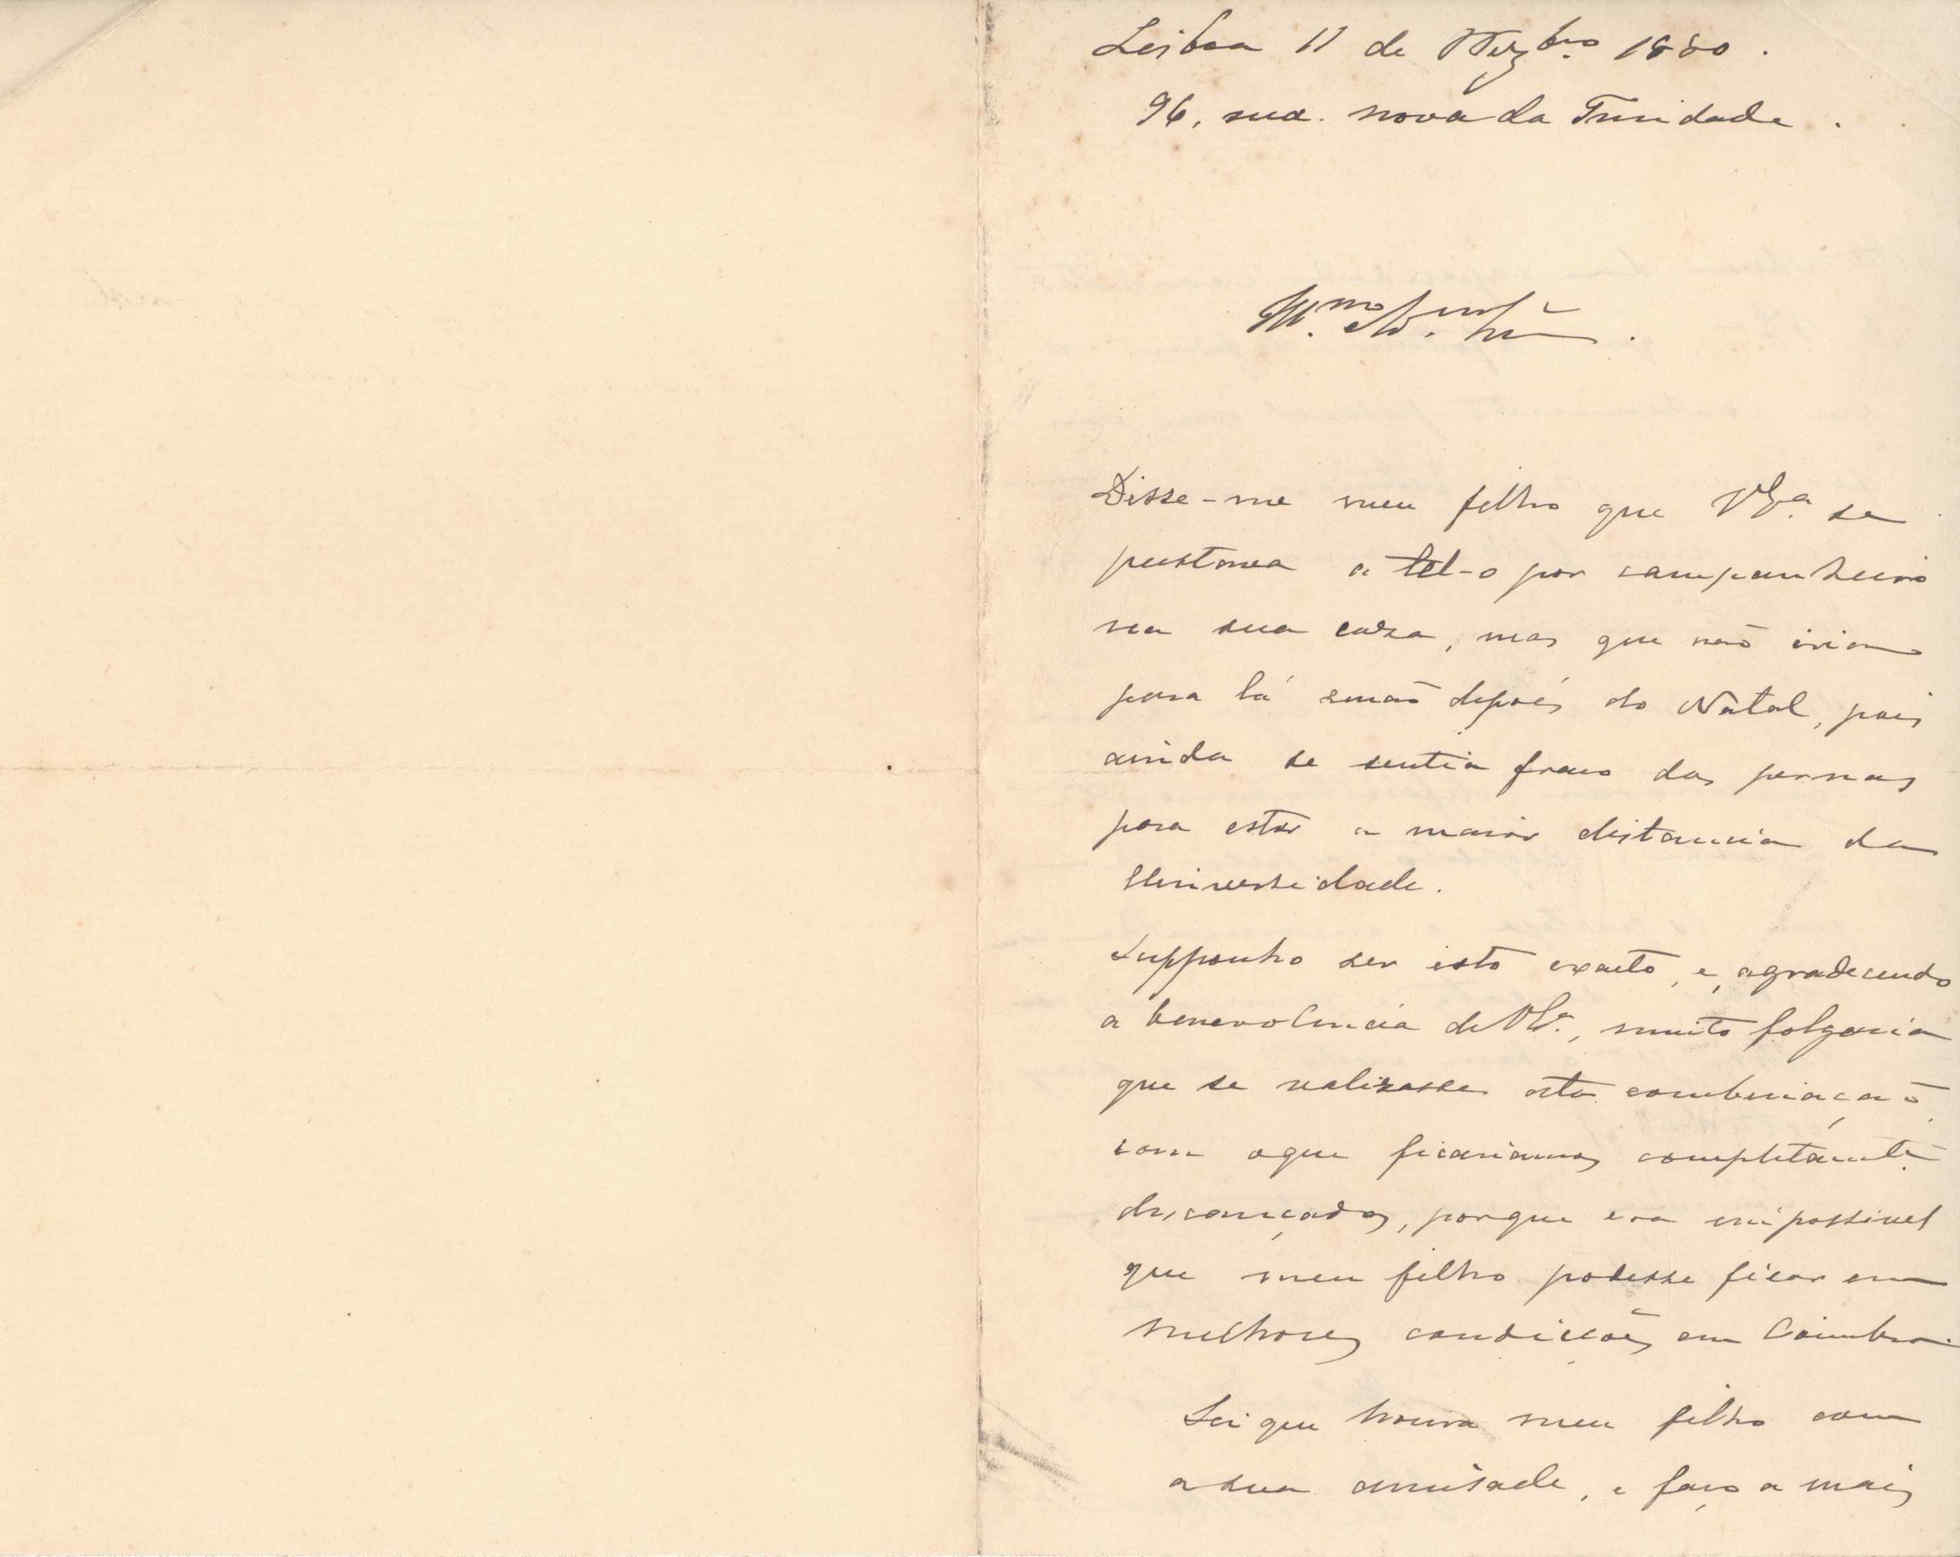 Lisboa 11 de Dezbro. 1880.
96, rua nova da Trindade.
Illmo. Exmo. Snr.
Disse-me meu filho que VExa. se
prestava a tel-o por companheiro
na sua casa, mas que não iriam
para lá senão depois do Natal, pois
ainda se sentia fraco das pernas
para estar a maior distancia da
Universidade.
Supponho ser isto exacto, e, agradecendo
a benevolencia de VExa., muito folgaria
que se realizasse esta combinação
com o que ficariamos completamte.
descançados, porque era impossivel
que meu filho podesse ficar em
melhores condicções em Coimbra.
Sei que honra meu filho com
a sua amisade, e faço a mais